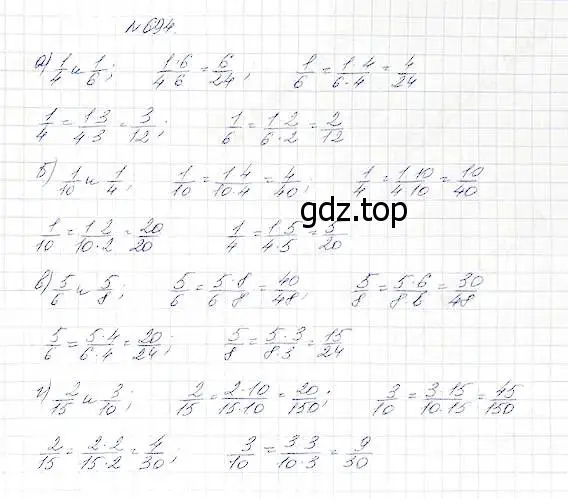 №694.
а) 1/4 и 1/6; 1·6/4·6 = 6/24; 1/6 = 1·4/6·4 = 4/24
1/4 = 1·3/4·3 = 3/12; 1/6 = 1·2/6·2 = 2/12
б) 1/10 и 1/4; 1/10 = 1·4/10·4 = 4/40; 1/4 = 1·10/4·10 = 10/40
gdz.top
1/10 = 1·2/10·2 = 20/20 1/4 = 1·5/4·5 = 5/20
в) 5/6 и 5/8; 5/6 = 5·8/6·8 = 40/48; 5/8 = 5·6/8·6 = 30/48
5/6 = 5·4/6·4 = 20/24; 5/8 = 5·3/8·3 = 15/24
г) 2/15 и 3/10; 2/15 = 2·10/15·10 = 20/150; 3/10 = 3·15/10·15 = 45/150
2/15 = 2·2/15·2 = 4/30; 3/10 = 3·3/10·3 = 9/30